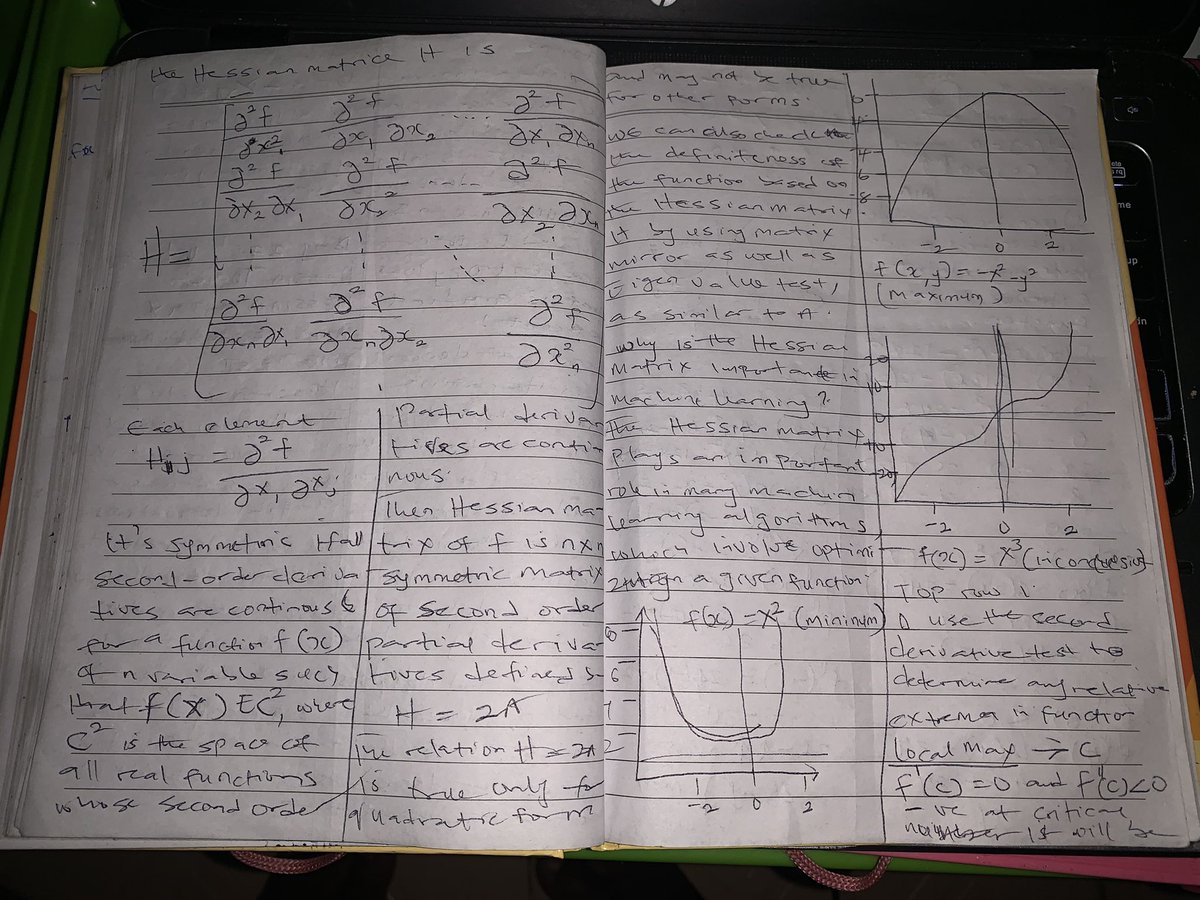 the Hessian matrice H is
H =
∂²f/∂x²₁ ∂²f/∂x₁∂x₂ .... ∂²f/∂x₁∂xₙ
∂²f/∂x₂∂x₁ ∂²f/∂x₂² ..... ∂²f/∂x₂∂xₙ
∂²f/∂xₙ∂x₁ ∂²f/∂xₙ∂x₂ ∂²f/∂x²ₙ
Each element
Hᵢ,j = ∂²f
∂xᵢ ∂xⱼ
It's symmetric if all
second-order deriva
tives are continous &
for a function f(x)
of n variable such
that f(x) EC², where
C² is the space of
all real functions
whose second order
Partial deriva
tives are conti-
nous.
Then Hessian ma-
trix of f is nxn
symmetric matrix
of second order
partial deriva-
tives defined s-
H = 2A
The relation H = 2A
is true only for
quadratic form
and may not be true
for other forms.
we can also check
the definiteness of
the function based on
the Hessian matrix
H by using matrix
mirror as well as
Eigen value test,
as similar to A.
why is the Hessian
Matrix importante in
machine learning?
The Hessian matrix
plays an important
role in many machin
learning algoritms,
which involve optimi
in a given function.
f(x) = x² (mininum)
8
6
2
-2 0 2
-2 0 2
f(x,y) = -x²-y²
(maximum)
-2 0 2
f(x) = x³ (inconclusive)
Top row 1
use the second
derivative test to
determine any relative
extrema in function
Local max → C
f'(c) = 0 and f''(c)<0
-ve at critical
it will be